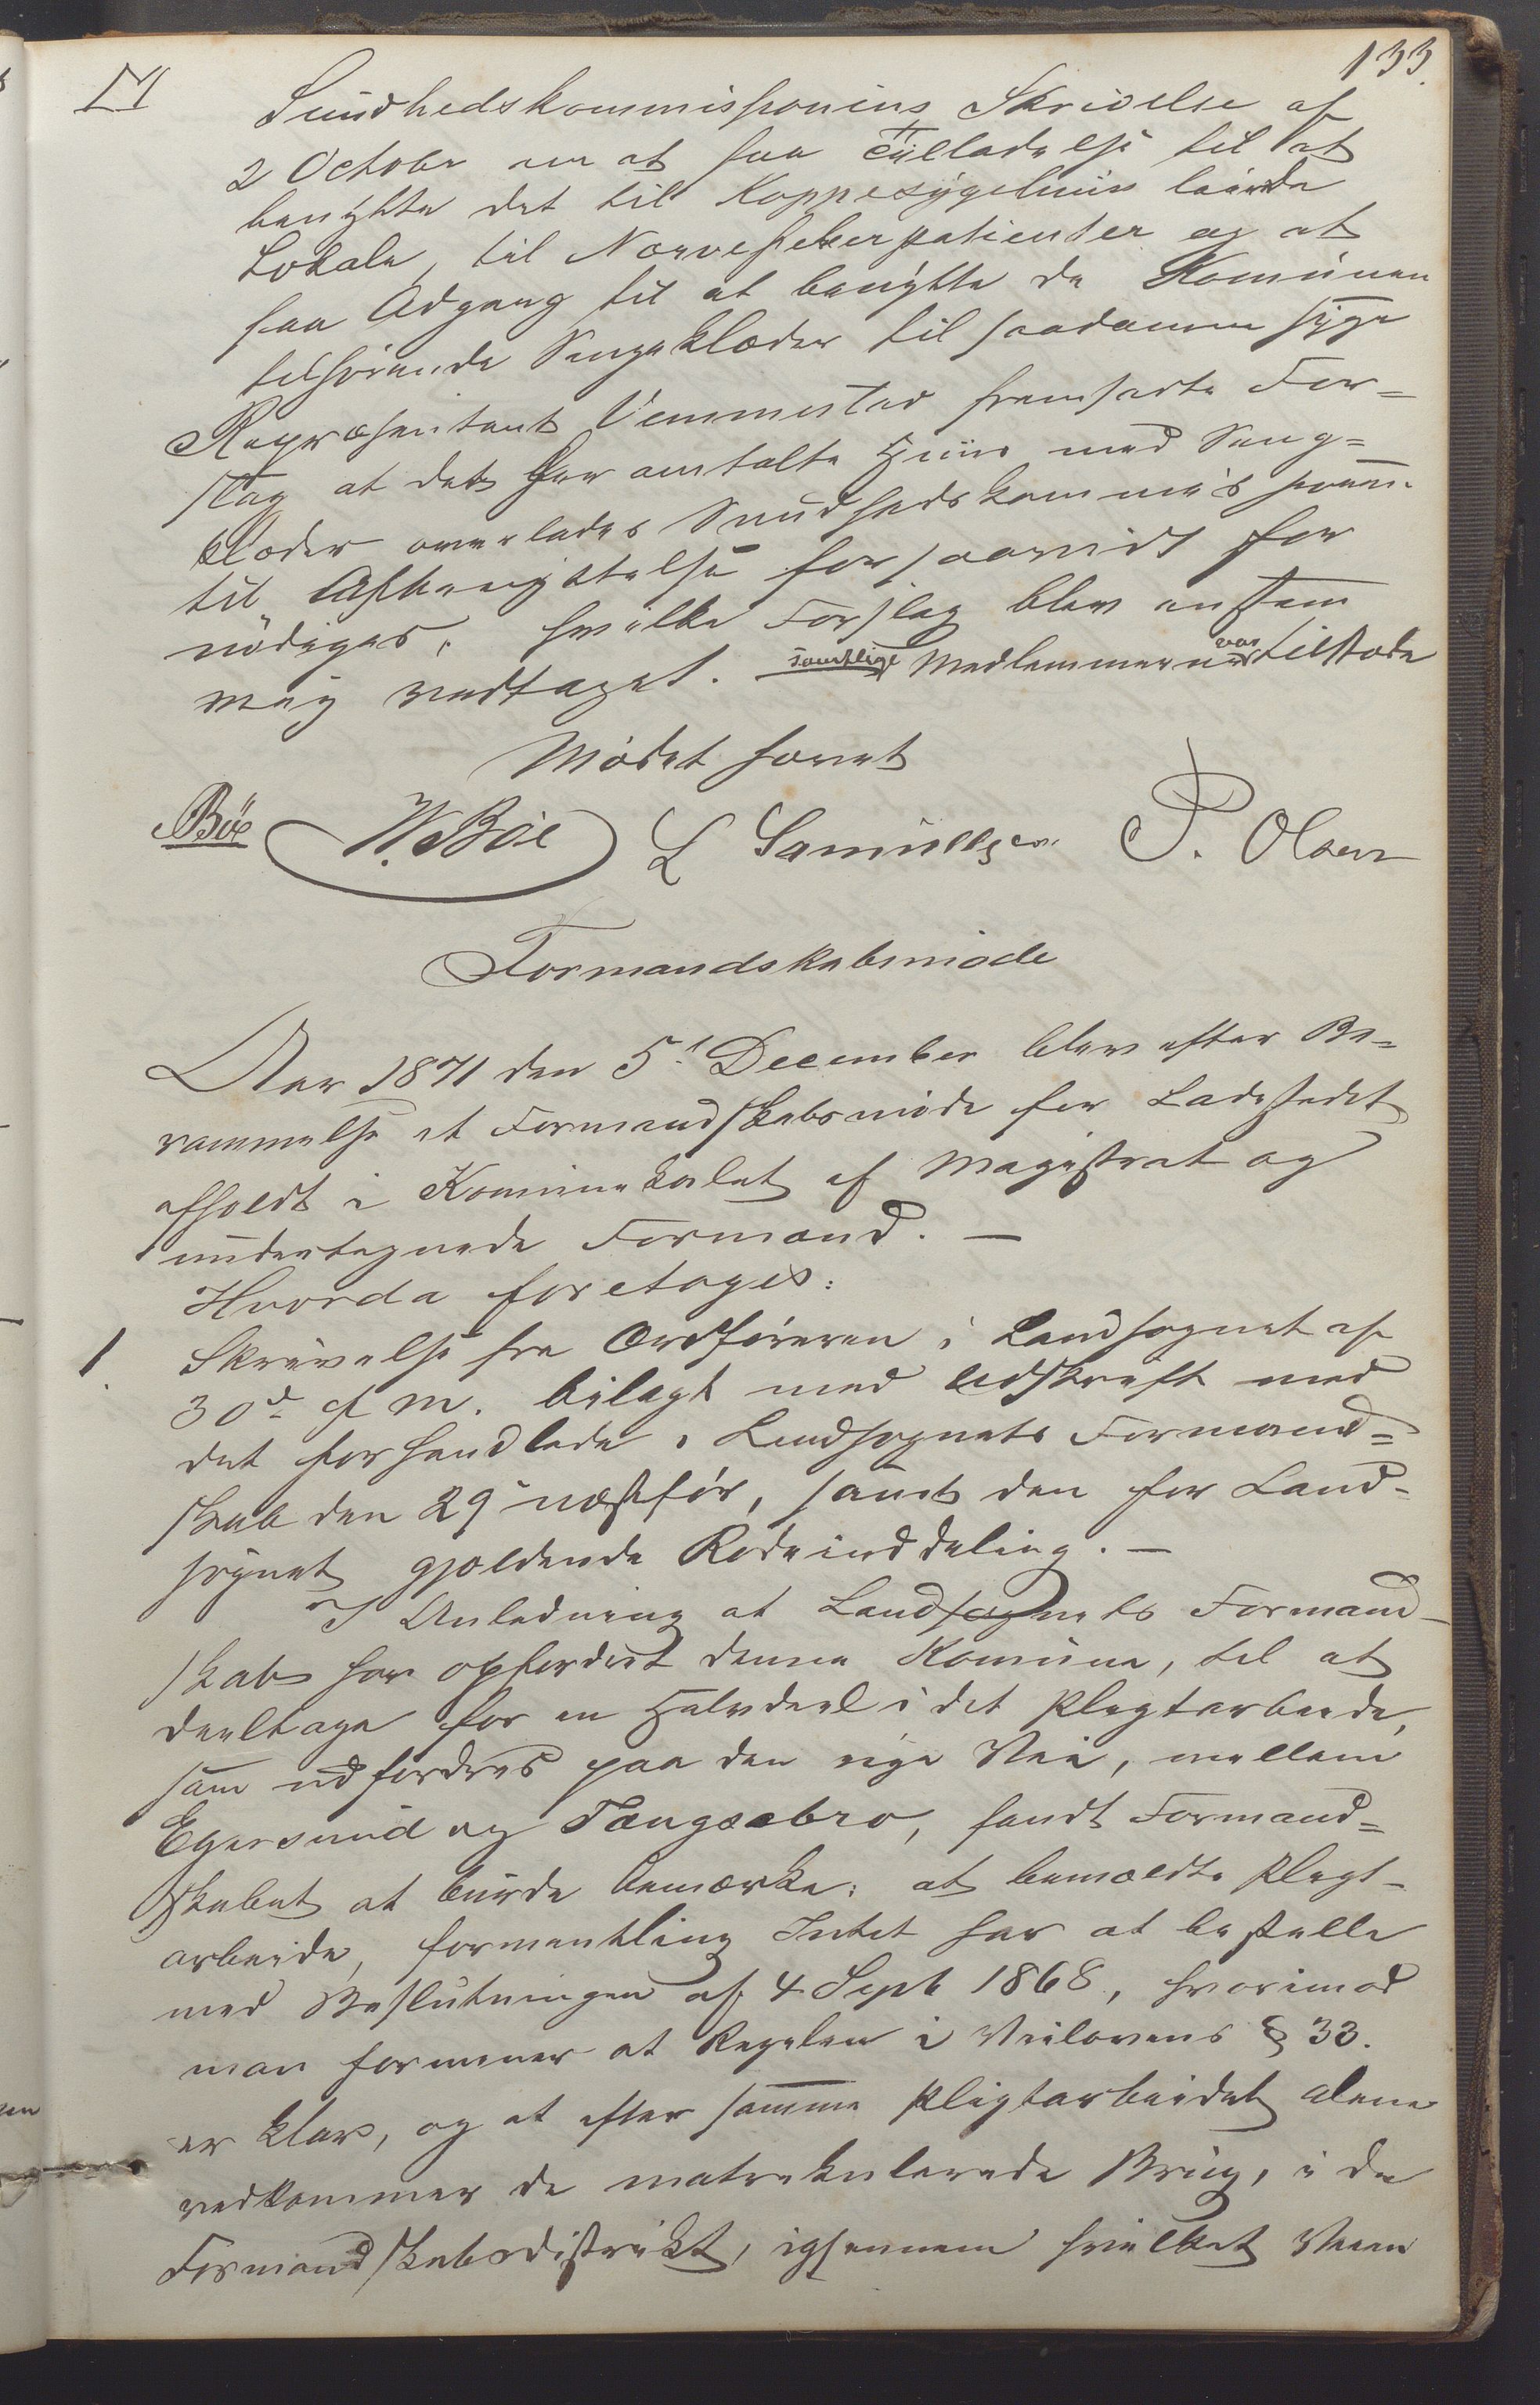 133.
Sundhedskommissionens Skrivelse af
2 October om at faa Tilladelse til at
benytte det til Koppesygehuus leiede
Lokale, til Nervefeberpatienter og at
faa Adgang til at benytte de Komunen
tilhørende Sengeklæder til saadanne syge
Repræsentant Vemmestad fremsatte For-
slag at det her omtalte Huus med Seng-
klæder overlades Sundhedskommissionen
til Afbenyttelse forsaavidt for
nödiges, hvilke Forslag blev enstem
mig vedtaget. samtlige Medlemmerne var tilstede
Mödet hævet
Böe W. Böe L Samuelsen P. Olsen
Formandskabsmöde
Aar 1871 den 5te December blev efter Be-
rammelse et Formandskabsmöde for Ladestedet
afholdt i Komunelokalet af Magistrat og
undertegnede Formænd. —
Hvorda foretoges:
1. Skrivelse fra Ordföreren i Landsognet af
30d f. M. bilagt med Udskrift med
det forhandlede i Landsognets Formand-
skab den 29 næstför, samt den for Land-
sognet gjældende Rodeinddeling. —
I Anledning at Landsognets Formand-
skab har opfordret denne Komune, til at
deeltage for en Halvdeel i det Pligtarbeide,
som udfordres paa den nye Vei, mellem
Egersund og Tengsabro, fandt Formand-
skabet at burde bemærke: at bemældte Pligt-
arbeide, formentling Intet har at bestille
med Beslutningen af 4 Sept 1868, hvorimod
man formener at Regelen i Veilovens § 33.
er klar, og at efter samme Pligtarbeidet alene
vedkommer de matrekulerede Brug, i de
Formandskabsdistrikt, igjennem hvilket Veien